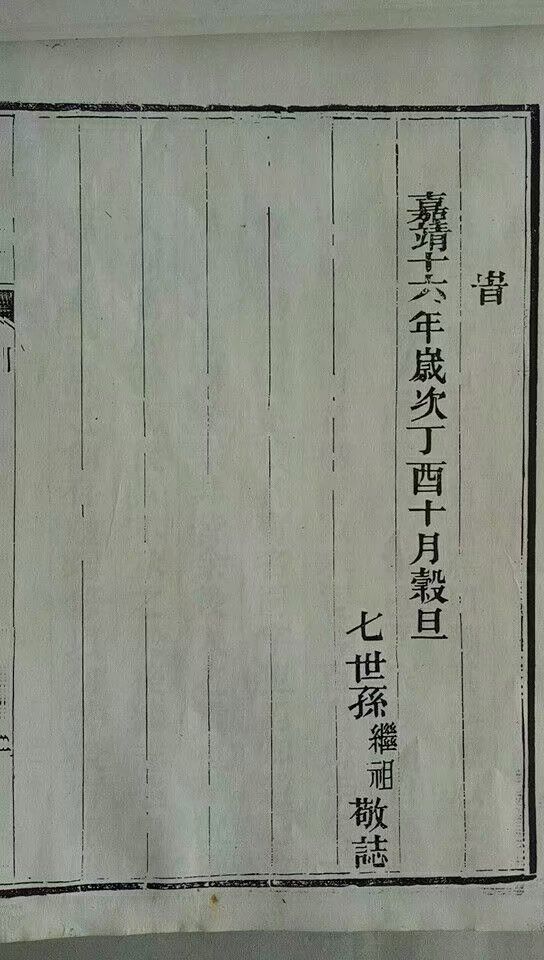 旹
嘉靖十六年歲次丁酉十月穀旦
七世孫繼祖敬誌